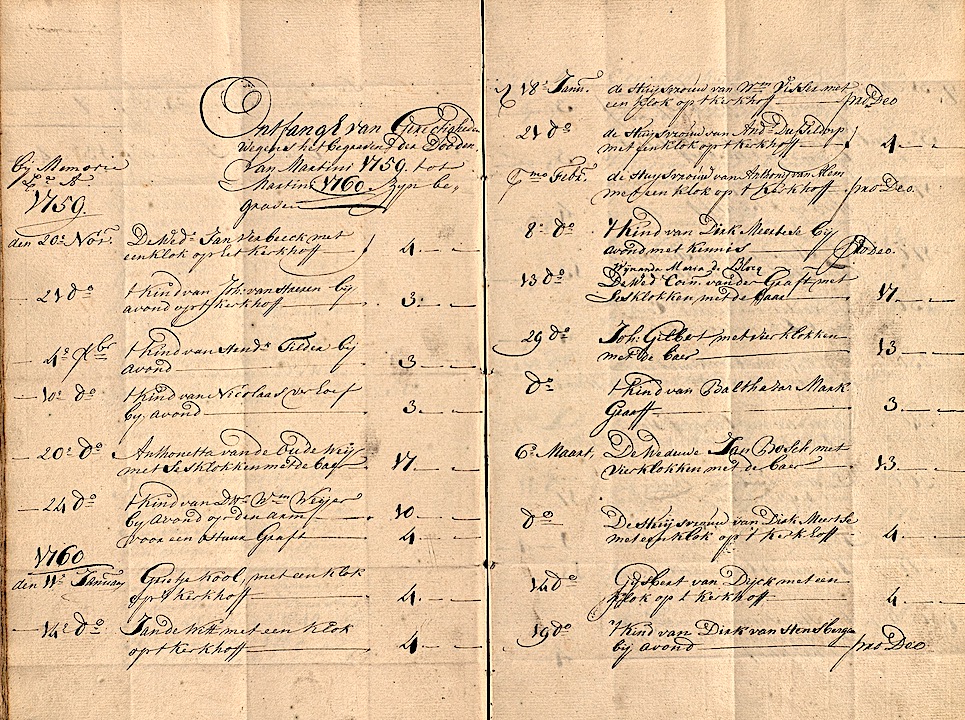 Ontfangst van Gerechtigheden
wegens het begraven der Dooden,
van Martini 1759. tot
Martini 1760. zijn be,
graven
bij Memorie
1759.
den 20e Novr. De Wede Jan Verbeeck met
een klok op het kerkhoff 4. — —
21 do t kind van Joh: van Haesen bij
avond op t kerkhoff 3. — —
4e Xbr t kind van Hendk Tilder bij
avond 3. — —
10e do t kind van Nicolaas ver Loef
bij avond 3. — —
20e do Anthonetta van de Oude Wijs
met Ses klokken met de baer 17. — —
24 do t kind van Do Wm Weyer
bij avond op den arm 10. — —
voor een Graft 4. — —
1760
den 11e January Grietje Kool, met een klok
op t kerkhoff 4. — —
14e do Jan de Witt met een klok
op t kerkhoff 4. — —
18e Jann. de Huijsvrouw van Wm Visser met
een klok op t kerkhoff pro Deo
21 do de Huijsvrouw van Andr. Dusseldorp
met een klok op t kerkhoff 4. — —
pmo Febr. de Huijsvrouw van Anthony van Hem
met een klok op t kerkhoff pro Deo.
8e do t kind van Dirk Meertese bij
avond met kennis pro Deo.
Wijnanda Maria de Block
13 do De Wed Corn. van der Graft met
Ses klokken met de baar 17. — —
29 do Joh: Gilbert met vier klokken
met de baer 13. — —
do t kind van Balthazar Mark
Graaff 3. — —
6e Maart, De Weduwe Jan Bosch met
vier klokken met de baer 13. — —
do De Huijsvrouw van Dirk Meertse
met een klok op 't kerkhoff 4. — —
14 do Gijsbert van Dijck met een
klok op t kerkhoff 4. — —
19 do 't kind van Dirk van Hensbergen
bij avond pro Deo